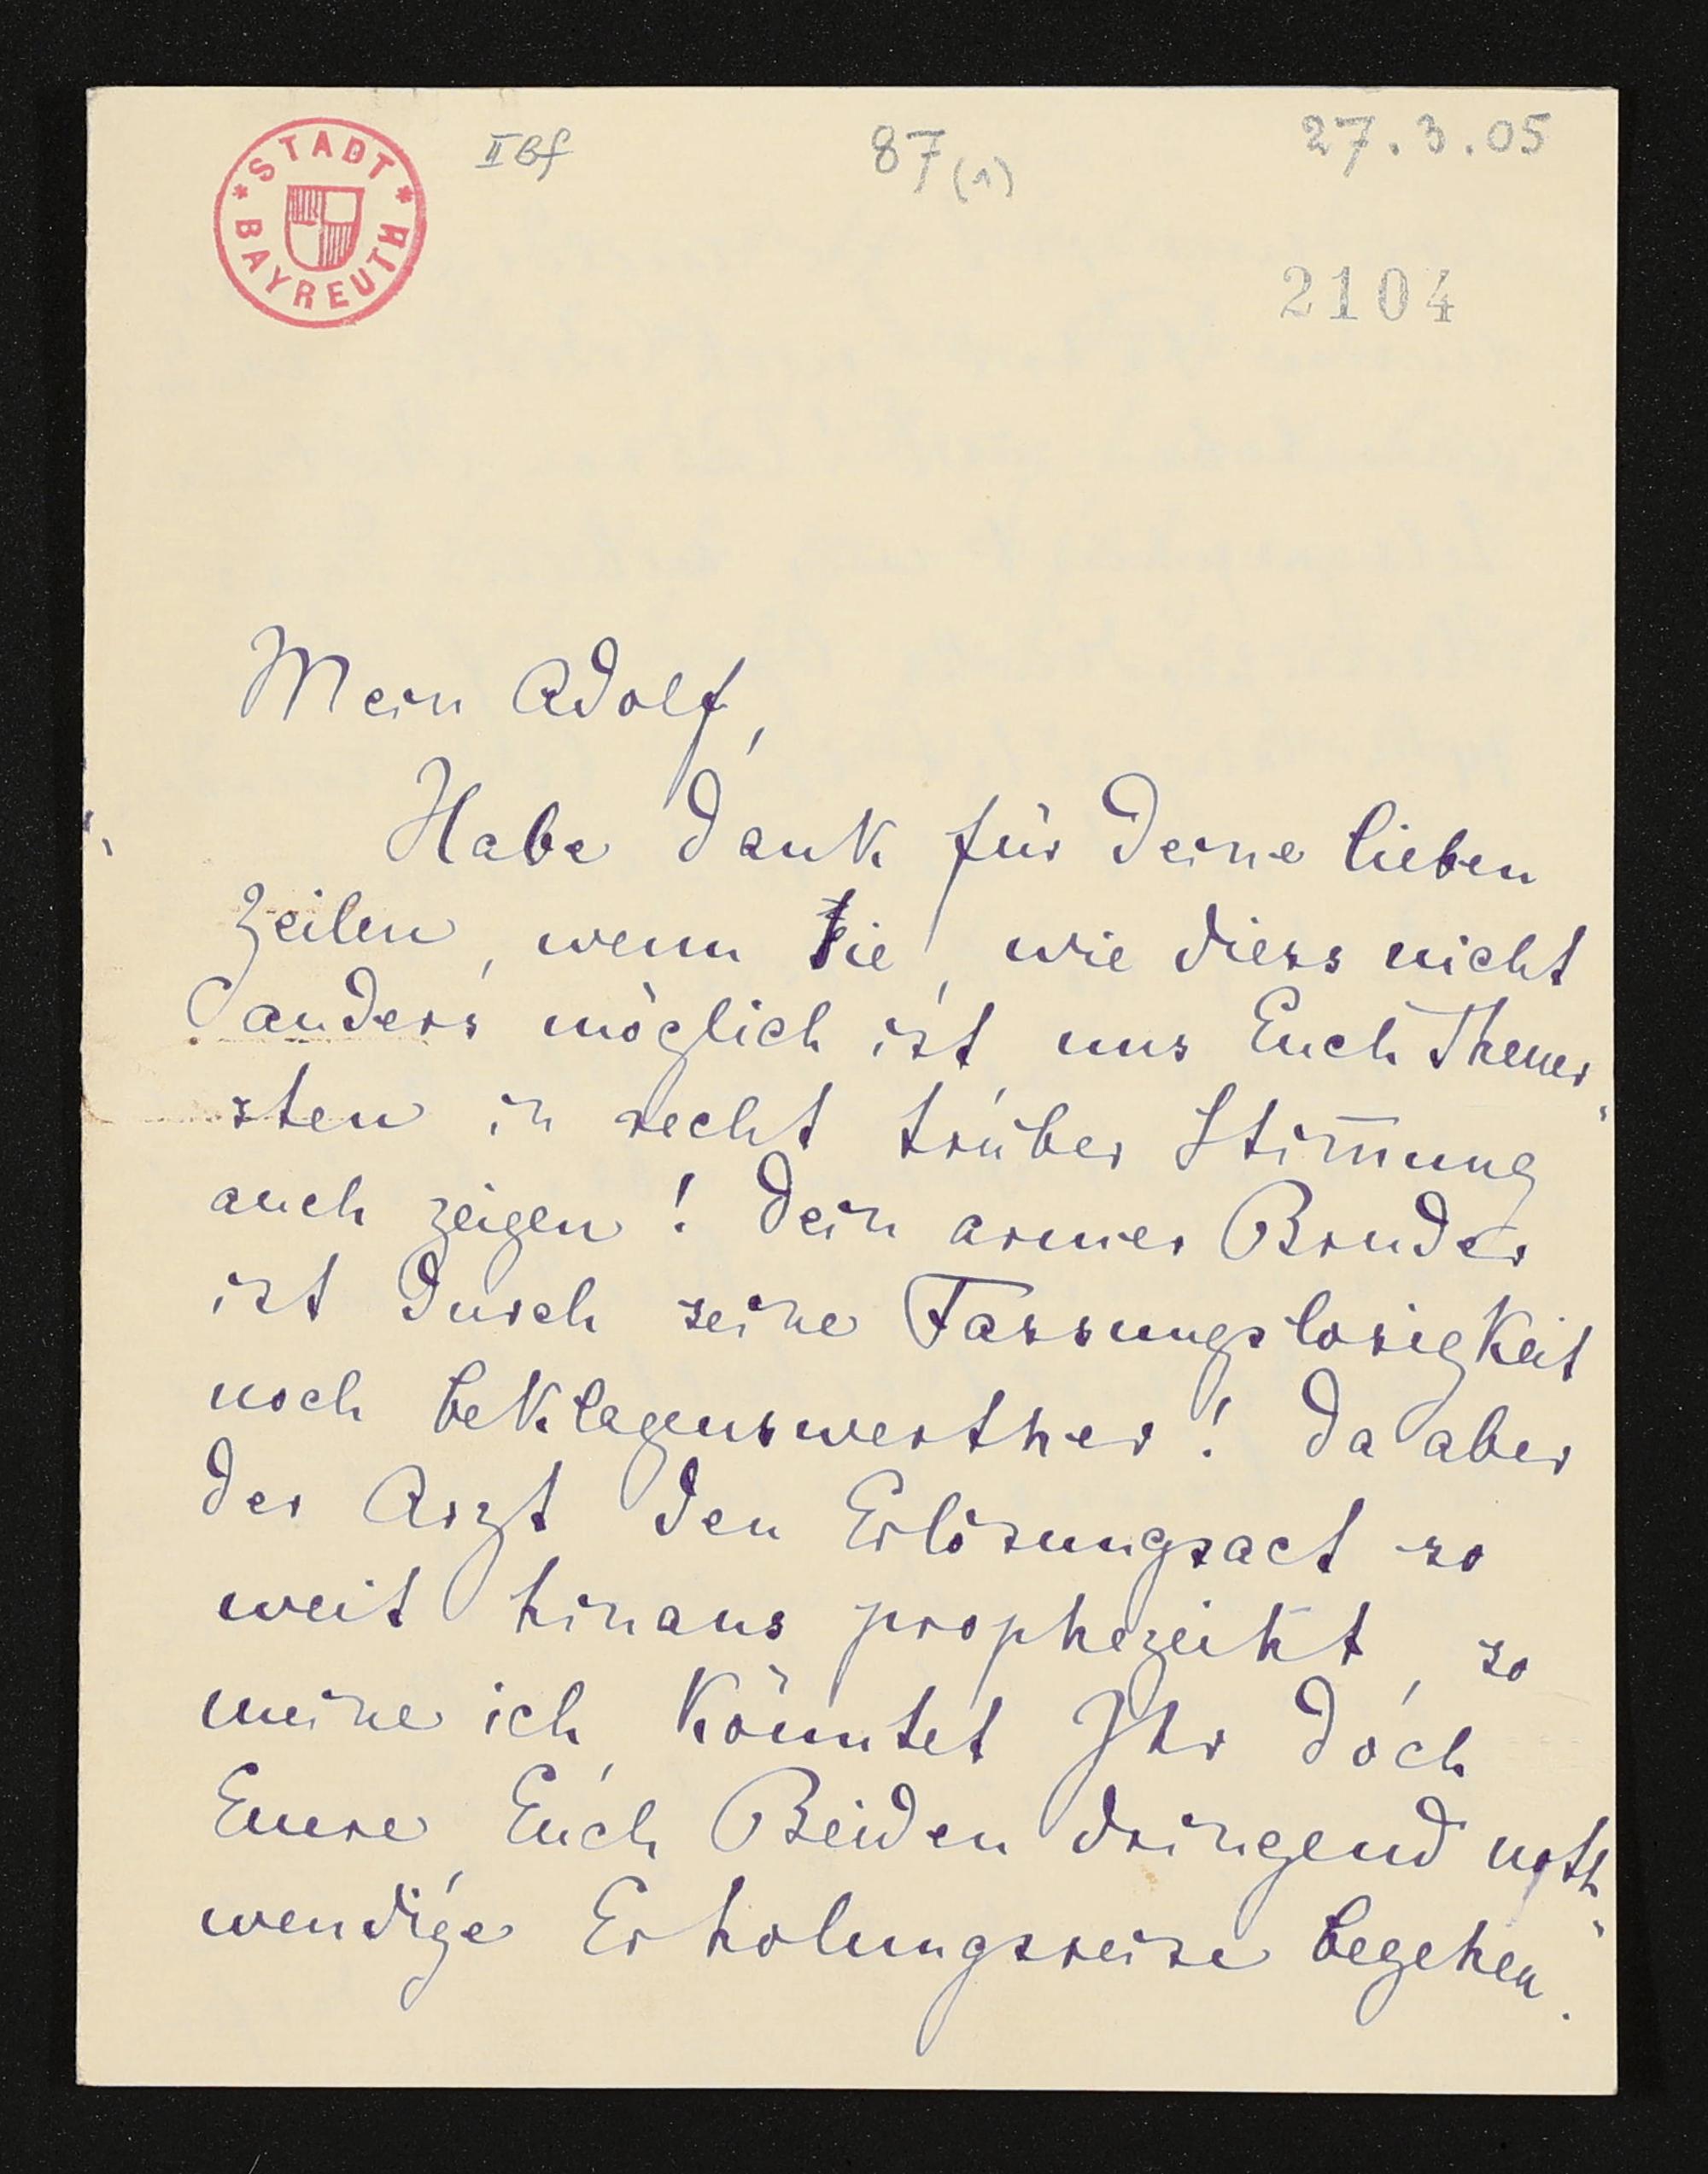 * STADT *
BAYREUTH
II Bf
87 (1)
27.3.05
2104
Mein Adolf,
Habe Dank für Deine lieben
Zeilen, wenn sie, wie diess nicht
anders möglich ist, uns Euch Theuer-
sten in recht trüber Stim̅ung
auch zeigen! Dein armer Bruder
ist durch seine Fassungslosigkeit
noch beklagenswerther! Da aber
der Arzt den Erlösungsact so
weit hinaus prophezeiht, so
meine ich, könntet Ihr doch
Eure, Euch Beiden dringend noth-
wendige Erholungsreise begehen.